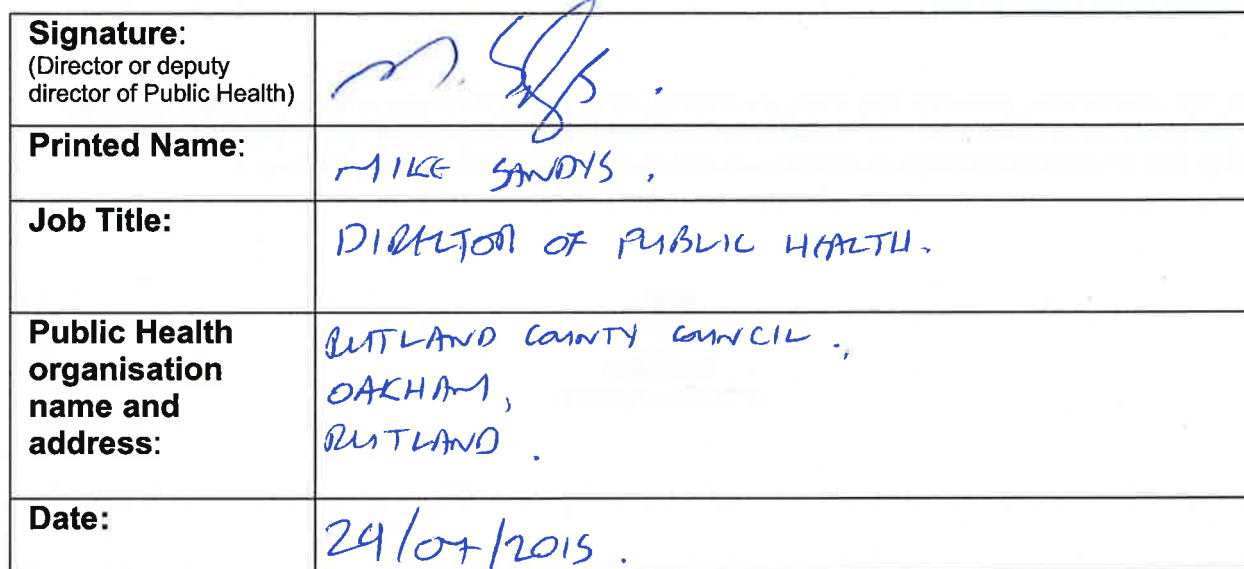 Signature:
(Director or deputy
director of Public Health)
Printed Name:
MIKE SANDYS.
Job Title:
DIRECTOR OF PUBLIC HEALTH.
Public Health
organisation
name and
address:
RUTLAND COUNTY COUNCIL.,
OAKHAM,
RUTLAND.
Date:
29/07/2015.